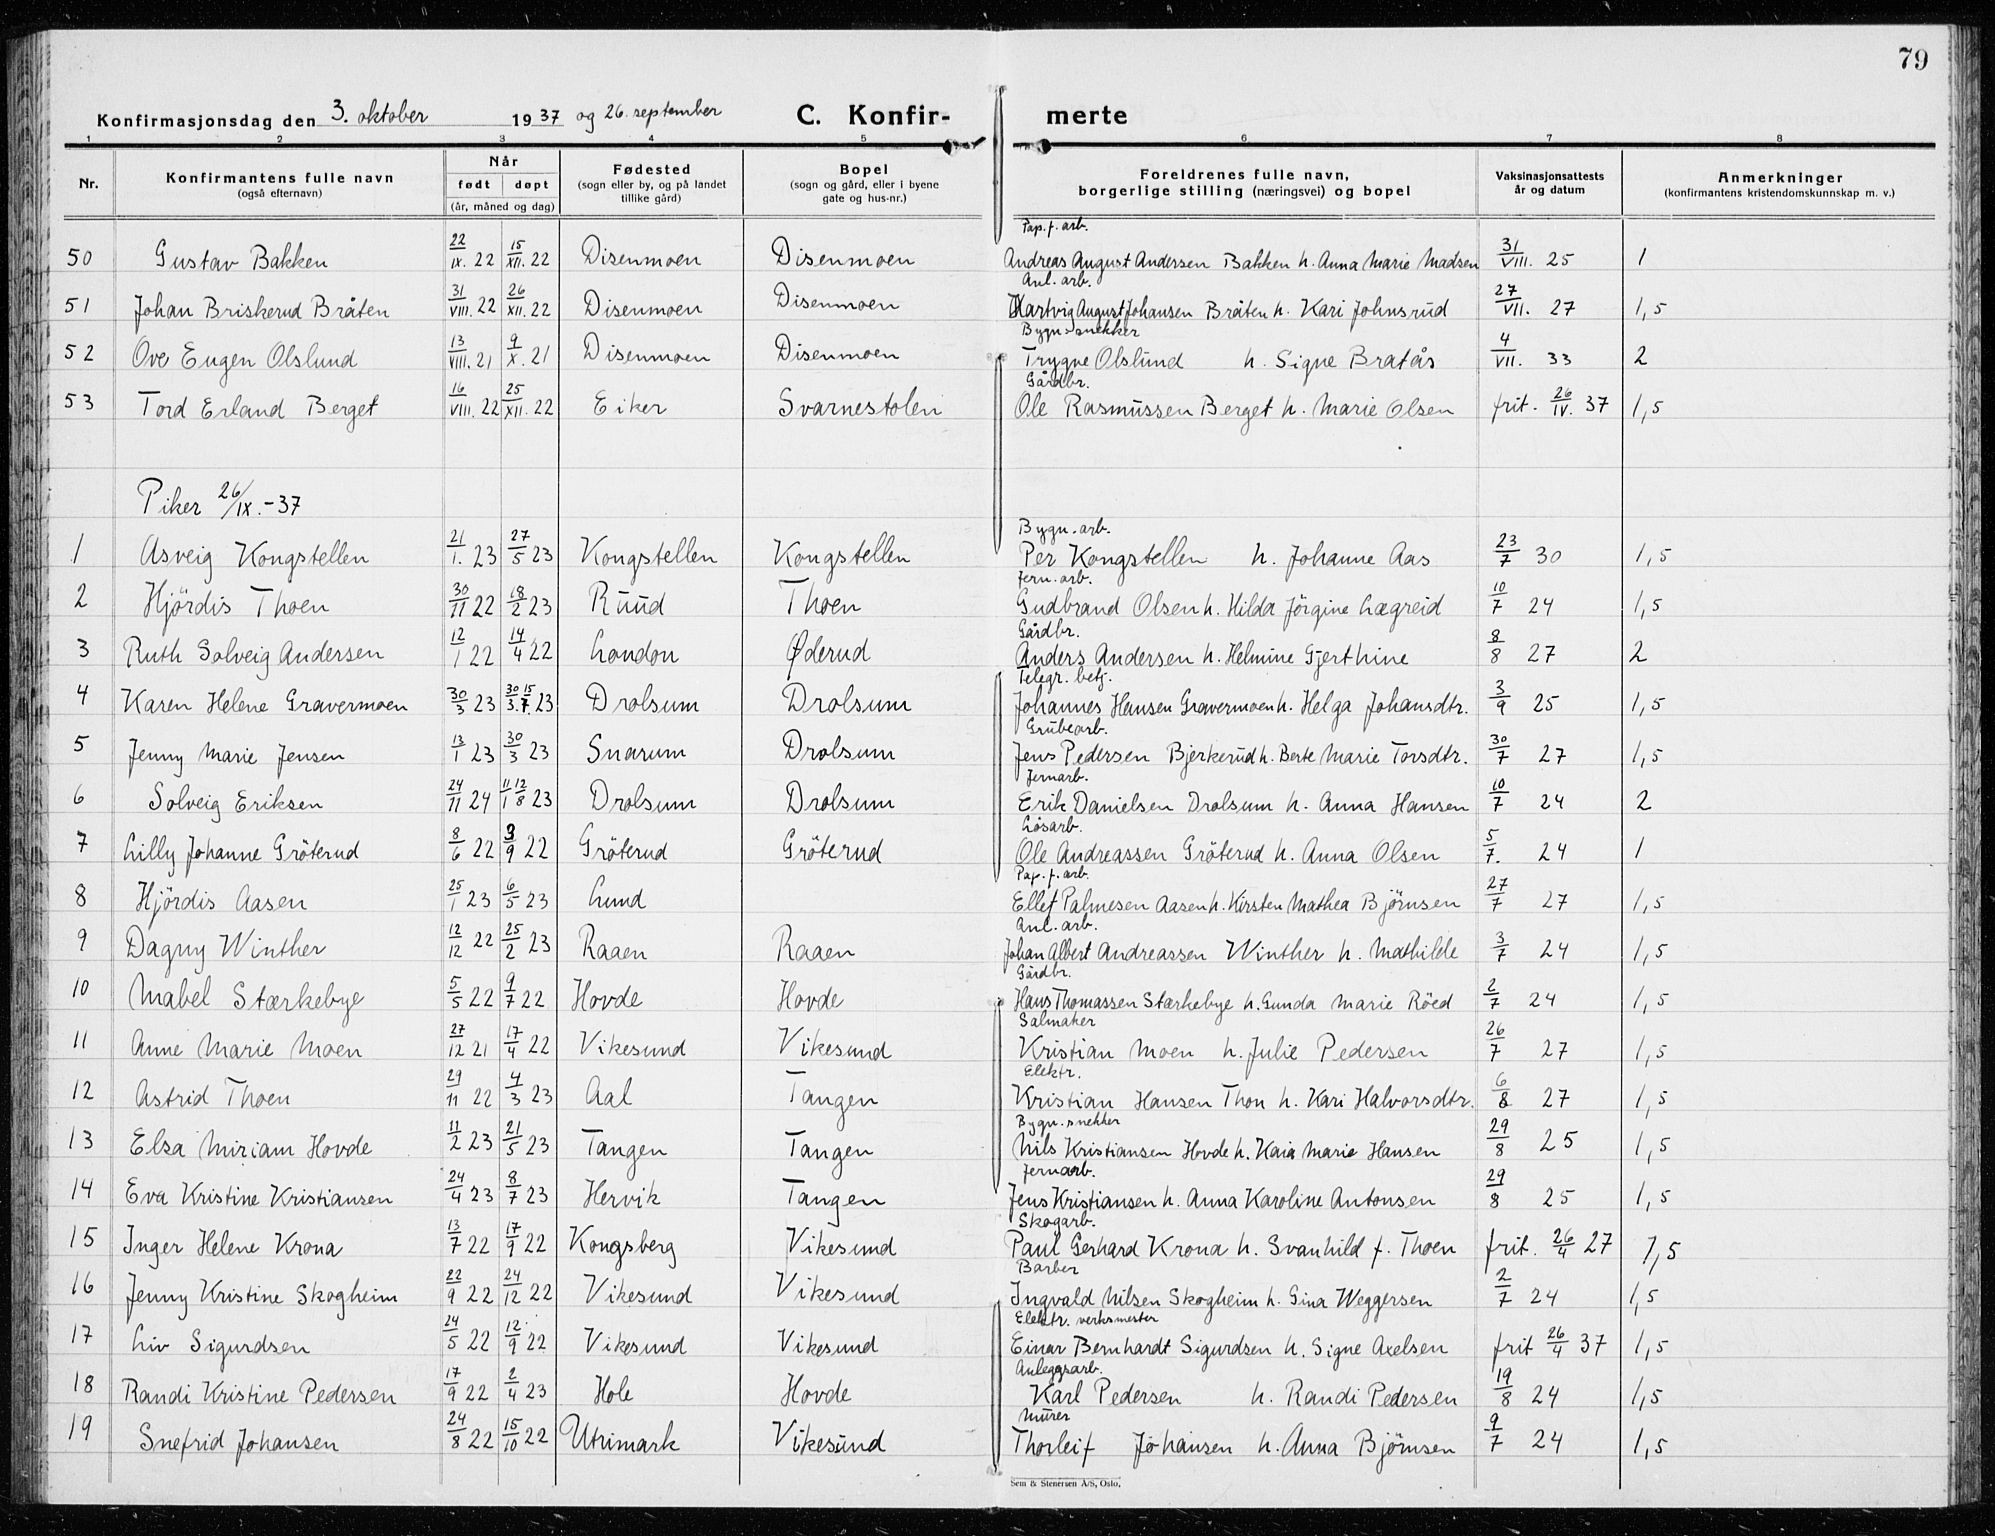 79
Konfirmasjonsdag den 3. oktober 1937 og 26. september C. Konfir- merte
1 2 3 4 5 6 7 8
Nr. Konfirmantens fulle navn (også efternavn) Når født døpt (år, måned og dag) Fødested (sogn eller by, og på landet tillike gård) Bopel (sogn og gård, eller i byene gate og hus-nr.) Foreldrenes fulle navn, borgerlige stilling (næringsvei) og bopel Vaksinasjonsattests år og datum Anmerkninger (konfirmantens kristendomskunnskap m. v.)
Pap. f. arb.
50 Gustav Bakken 22/IX. 22 15/XII. 22 Disenmoen Disenmoen Andreas August Andersen Bakken h. Anna Marie Madsen 31/VIII. 25 1
Anl. arb.
51 Johan Briskerud Bråten 31/VIII. 22 26/XII. 22 Disenmoen Disenmoen Hartvig August Johansen Bråten h. Kari Johnsrud 27/VII. 27 1,5
Bygn. snekker
52 Ove Eugen Olslund 13/VIII. 21 9/X. 21 Disenmoen Disenmoen Trygve Olslund h. Signe Bratås 4/VII. 33 2
Gårdbr.
53 Tord Erland Berget 16/VIII. 22 25/XII. 22 Eiker Svarnestolen Ole Rasmussen Berget h. Marie Olsen frit. 26/IV. 37 1,5
Piker 26/IX. - 37
Bygn. arb.
1 Asveig Kongstellen 21/1. 23 27/5 23 Kongstellen Kongstellen Per Kongstellen h. Johanne Aas 23/7 30 1,5
Jern. arb.
2 Hjördis Thoen 30/11 22 18/2 23 Ruud Thoen Gudbrand Olsen h. Hilda Jörgine Lægreid 10/7 24 1,5
Gårdbr.
3 Ruth Solveig Andersen 12/1 22 14/4 22 London Øderud Anders Andersen h. Helmine Gjerthine 8/8 27 2
Telegr. betj.
4 Karen Helene Gravermoen 30/3 23 30/3. 15/7. 23 Drolsum Drolsum Johannes Hansen Gravermoen h. Helga Johansdtr. 3/9 25 1,5
Grubearb.
5 Jenny Marie Jensen 13/1 23 30/3 23 Snarum Drolsum Jens Pedersen Bjerkerud h. Berte Marie Torsdtr. 30/7 27 1,5
Jernarb.
6 Solveig Eriksen 24/11 24 11/1 12/8 23 Drolsum Drolsum Erik Danielsen Drolsum h. Anna Hansen 10/7 24 2
Lösarb.
7 Lilly Johanne Gröterud 8/6 22 3/9 22 Gröterud Gröterud Ole Andreassen Gröterud h. Anna Olsen 5/7. 24 1
Pap. f. arb.
8 Hjördis Aasen 25/1 23 6/5 23 Lund Ellef Palmesen Aasen h. Kirsten Mathea Björnsen 27/7 27 1,5
Anl. arb.
9 Dagny Winther 12/12 22 25/2 23 Raaen Raaen Johan Albert Andreassen Winther h. Mathilde 3/7 24 1,5
Gårdbr.
10 Mabel Stærkebye 5/5 22 9/7 22 Hovde Hovde Hans Thomassen Stærkebye h. Gunda Marie Röed 2/7 24 1,5
Salmaker
11 Anne Marie Moen 27/12 21 17/4 22 Vikesund Vikesund Kristian Moen h. Julie Pedersen 26/7 27 1,5
Elektr.
12 Astrid Thoen 29/11 22 4/3 23 Aal Tangen Kristian Hansen Thon h. Kari Halvorsdtr. 6/8 27 1,5
Bygn. snekker
13 Elsa Miriam Hovde 11/2 23 21/5 23 Tangen Tangen Nils Kristiansen Hovde h. Kaia Marie Hansen 29/8 25 1,5
Jernarb.
14 Eva Kristine Kristiansen 24/4 23 8/7 23 Hervik Tangen Jens Kristiansen h. Anna Karoline Antonsen 29/8 25 1,5
Skogarb.
15 Inger Helene Krona 13/7 22 17/9 22 Kongsberg Vikesund Paul Gerhard Krona h. Svanhild f. Thoen frit. 26/4 27 1,5
Barber
16 Jenny Kristine Skogheim 22/9 22 24/12 22 Vikesund Vikesund Ingvald Nilsen Skogheim h. Gina Weggersen 2/7 24 1,5
Elektr. verksmester
17 Liv Sigurdsen 24/5 22 12/9 22 Vikesund Vikesund Einar Bernhardt Sigurdsen h. Signe Axelsen frit 26/4 37 1,5
Anleggsarb.
18 Randi Kristine Pedersen 17/9 22 2/4 23 Hole Hovde Karl Pedersen h. Randi Pedersen 19/8 24 1,5
Murer
19 Snefrid Johansen 24/8 22 15/10 22 Utrimark Vikesund Thorleif Johansen h. Anna Björnsen 9/7 24 1,5
Sem & Stenersen A/S, Oslo.